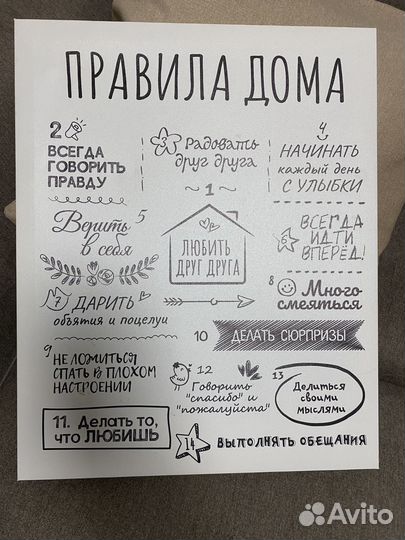 ПРАВИЛА ДОМА
2
ВСЕГДА
ГОВОРИТЬ
ПРАВДУ
3 Радовать
друг друга
4
НАЧИНАТЬ
каждый день
С УЛЫБКИ
~ 1 ~
ЛЮБИТЬ
ДРУГ ДРУГА
Верить 5
в себя
6 ВСЕГДА
ИДТИ
ВПЕРЁД!
7 ДАРИТЬ
объятия и поцелуи
8 Много
смеяться
9
НЕ ЛОЖИТЬСЯ
СПАТЬ В ПЛОХОМ
НАСТРОЕНИИ
10 ДЕЛАТЬ СЮРПРИЗЫ
12
Говорить
"спасибо" и
"пожалуйста"
13
Делиться
своими
мыслями
11. Делать то,
что ЛЮБИШЬ
14 ВЫПОЛНЯТЬ ОБЕЩАНИЯ
Avito